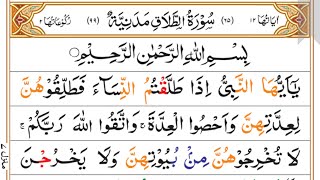 اٰيَاتُهَا ١٢ (٦٥) سُوْرَةُ الطَّلَاقِ مَدَنِيَّةٌ (٩٩) رُكُوْعَاتُهَا ٢
بِسْمِ اللّٰهِ الرَّحْمٰنِ الرَّحِيْمِ
يٰۤاَيُّهَا النَّبِيُّ اِذَا طَلَّقْتُمُ النِّسَآءَ فَطَلِّقُوْهُنَّ
لِعِدَّتِهِنَّ وَاَحْصُوا الْعِدَّةَ ۚ وَاتَّقُوا اللّٰهَ رَبَّكُمْ ۚ
لَا تُخْرِجُوْهُنَّ مِنْۢ بُيُوْتِهِنَّ وَلَا يَخْرُجْنَ